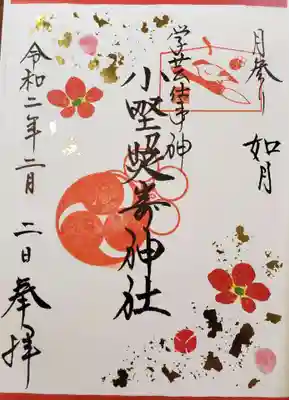 月参り
如月
学芸仕事神
小野照崎神社
令和二年二月二日奉拝